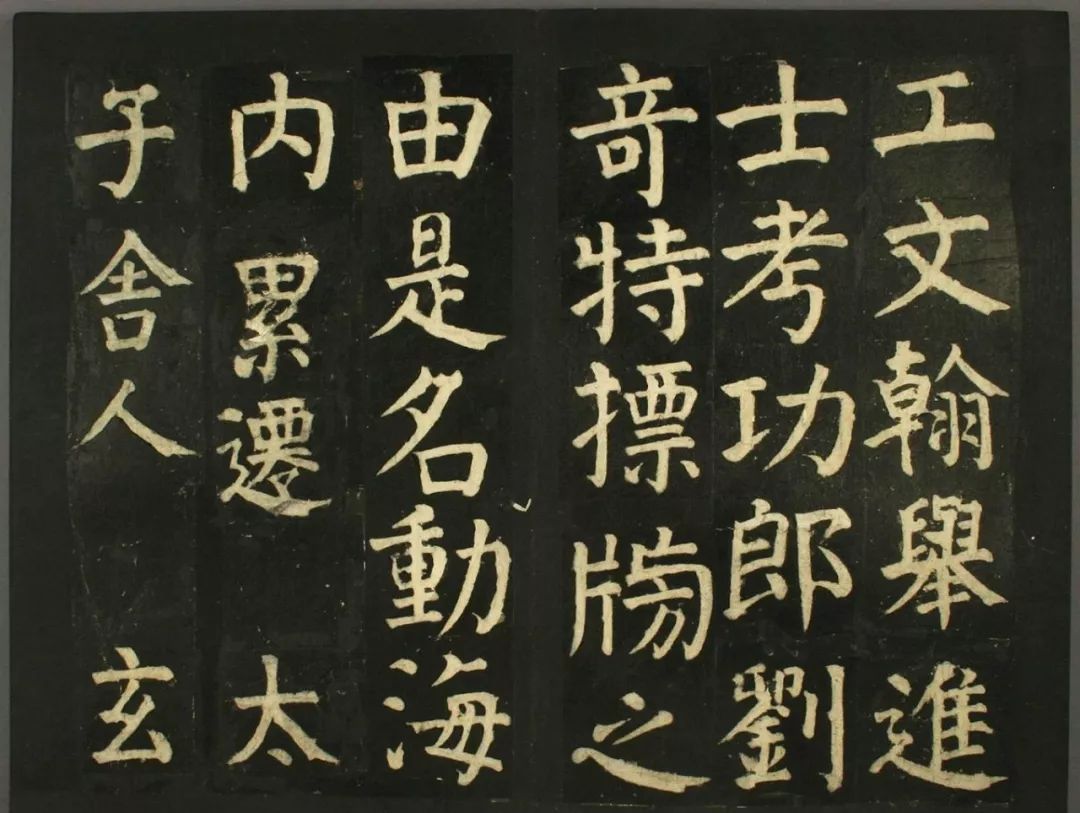 工文翰舉進
士考功郎劉
竒特摽牓之
由是名動海
内累遷太
子舍人玄